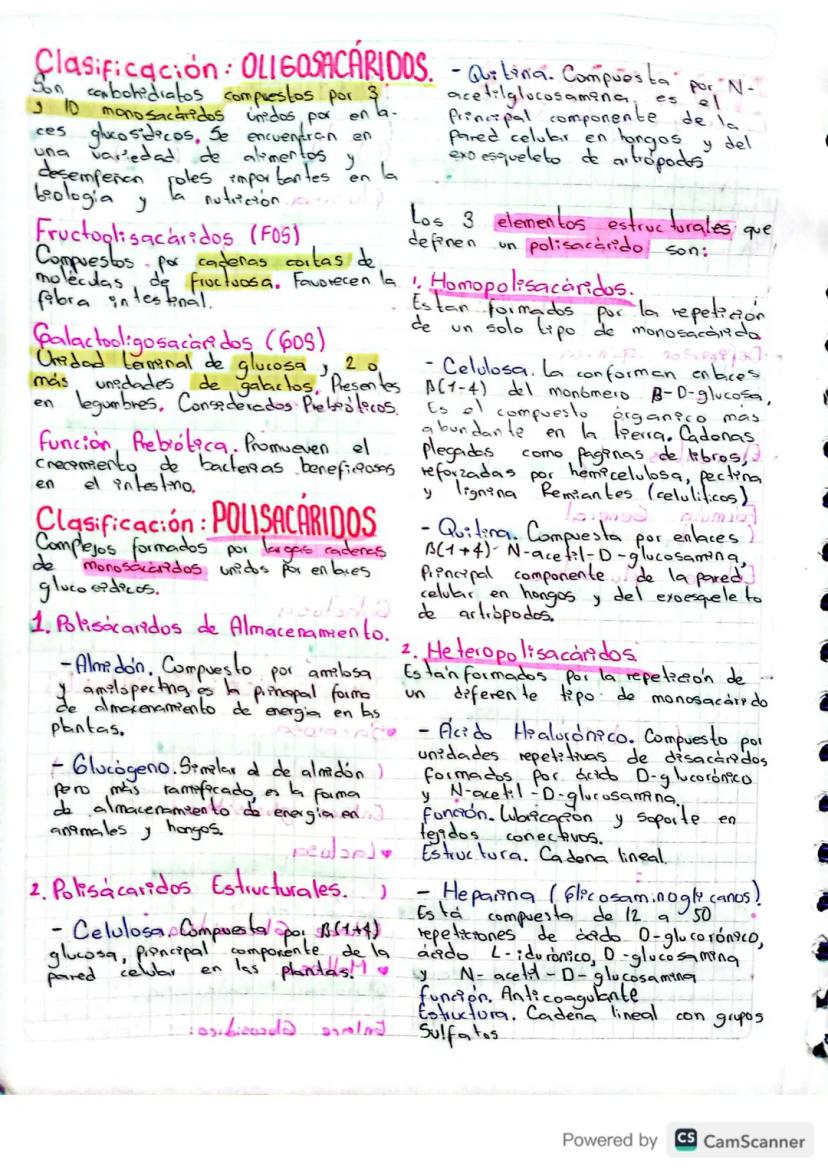 Clasificación: OLIGOSACÁRIDOS.
Son carbohidratos compuestos por 3
y 10 monosacáridos unidos por enla-
ces glucosídicos. Se encuentran en
una variedad de alimentos y
desempeñan roles importantes en la
biología y la nutrición.
Fructoolisacáridos (FOS)
Compuestos por cadenas cortas de
moléculas de fructuosa. Favorecen la
fibra intestinal.
Galactooligosacáridos (GOS)
Unidad terminal de glucosa y 2 o
más unidades de galactos. Presentes
en legumbres. Considerados Prebióticos.
Función Prebiótica. Promueven el
crecimiento de bacterias beneficiosas
en el intestino.
Clasificación: POLISACÁRIDOS
Complejos formados por largas cadenas
de monosacáridos unidos por enlaces
glucosídicos.
1. Polisácaridos de Almacenamiento.
- Almidón. Compuesto por amilosa
y amilopectina, es la principal forma
de almacenamiento de energía en las
plantas.
- Glucógeno. Similar al de almidón
pero más ramificado, es la forma
de almacenamiento de energía en
animales y hongos.
2. Polisácaridos Estructurales.
- Celulosa. Compuesta por β(1→4)
glucosa, principal componente de la
pared celular en las plantas.
- Quitina. Compuesta por N-
acetilglucosamina, es el
principal componente de la
pared celular en hongos y del
exoesqueleto de artrópodos
Los 3 elementos estructurales que
definen un polisacárido son:
1. Homopolisacáridos.
Estan formados por la repetición
de un solo tipo de monosacárido
- Celulosa. La conforman enlaces
β(1-4) del monómero β-D-glucosa,
Es el compuesto órganico más
abundante en la tierra. Cadenas
plegados como paginas de libros,
reforzadas por hemicelulosa, pectina
y lignina Remiantes (celulíticos)
- Quitina. Compuesta por enlaces
β(1→4)- N-acetil-D-glucosamina,
Principal componente de la pared
celular en hongos y del exoesqueleto
de artrópodos.
2. Heteropolisacáridos
Están formados por la repetición de
un diferente tipo de monosacárido
- Ácido Hialurónico. Compuesto por
unidades repetitivas de disacáridos
formados por ácido D-glucorónico
y N-acetil-D-glucosamina.
función. Lubricación y soporte en
tejidos conectivos.
Estructura. Cadena lineal.
- Heparina (Glicosaminoglicanos).
Está compuesta de 12 a 50
repeticiones de ácido D-glucorónico,
ácido L-idurónico, D-glucosamina
y N-acetil-D-glucosamina
función. Anticoagulante
Estructura. Cadena lineal con grupos
Sulfatos
Powered by CS CamScanner